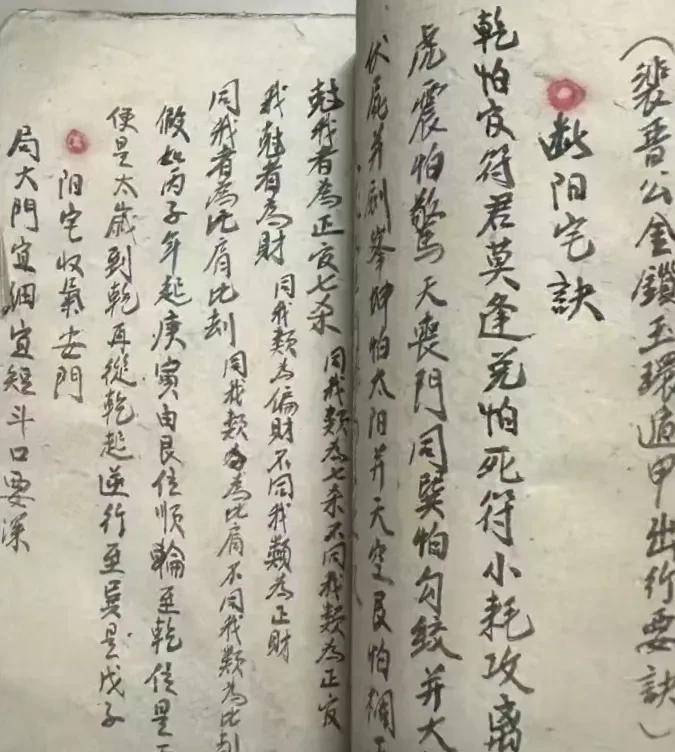 （裴晋公金鎖玉環遁甲出行要訣）
断阳宅訣
乾怕官符君莫逢兑怕死符小耗攻离
虎震怕驚天喪門同巽怕勾絞并大
伏屍并剑峯坤怕太阳并天空艮怕
尅我者為正官七杀 同我類為七杀不同我類為正官
我尅者為財 同我類為偏財不同我類為正財
同我者為比肩比刦 同我類為比肩不同我類為比刦
假如丙子年起庚寅由艮位順輪至乾位是
便是太歲到乾再從乾起逆行至巽是戊子
阳宅收氣安門
局大門宜細宜短斗口要深